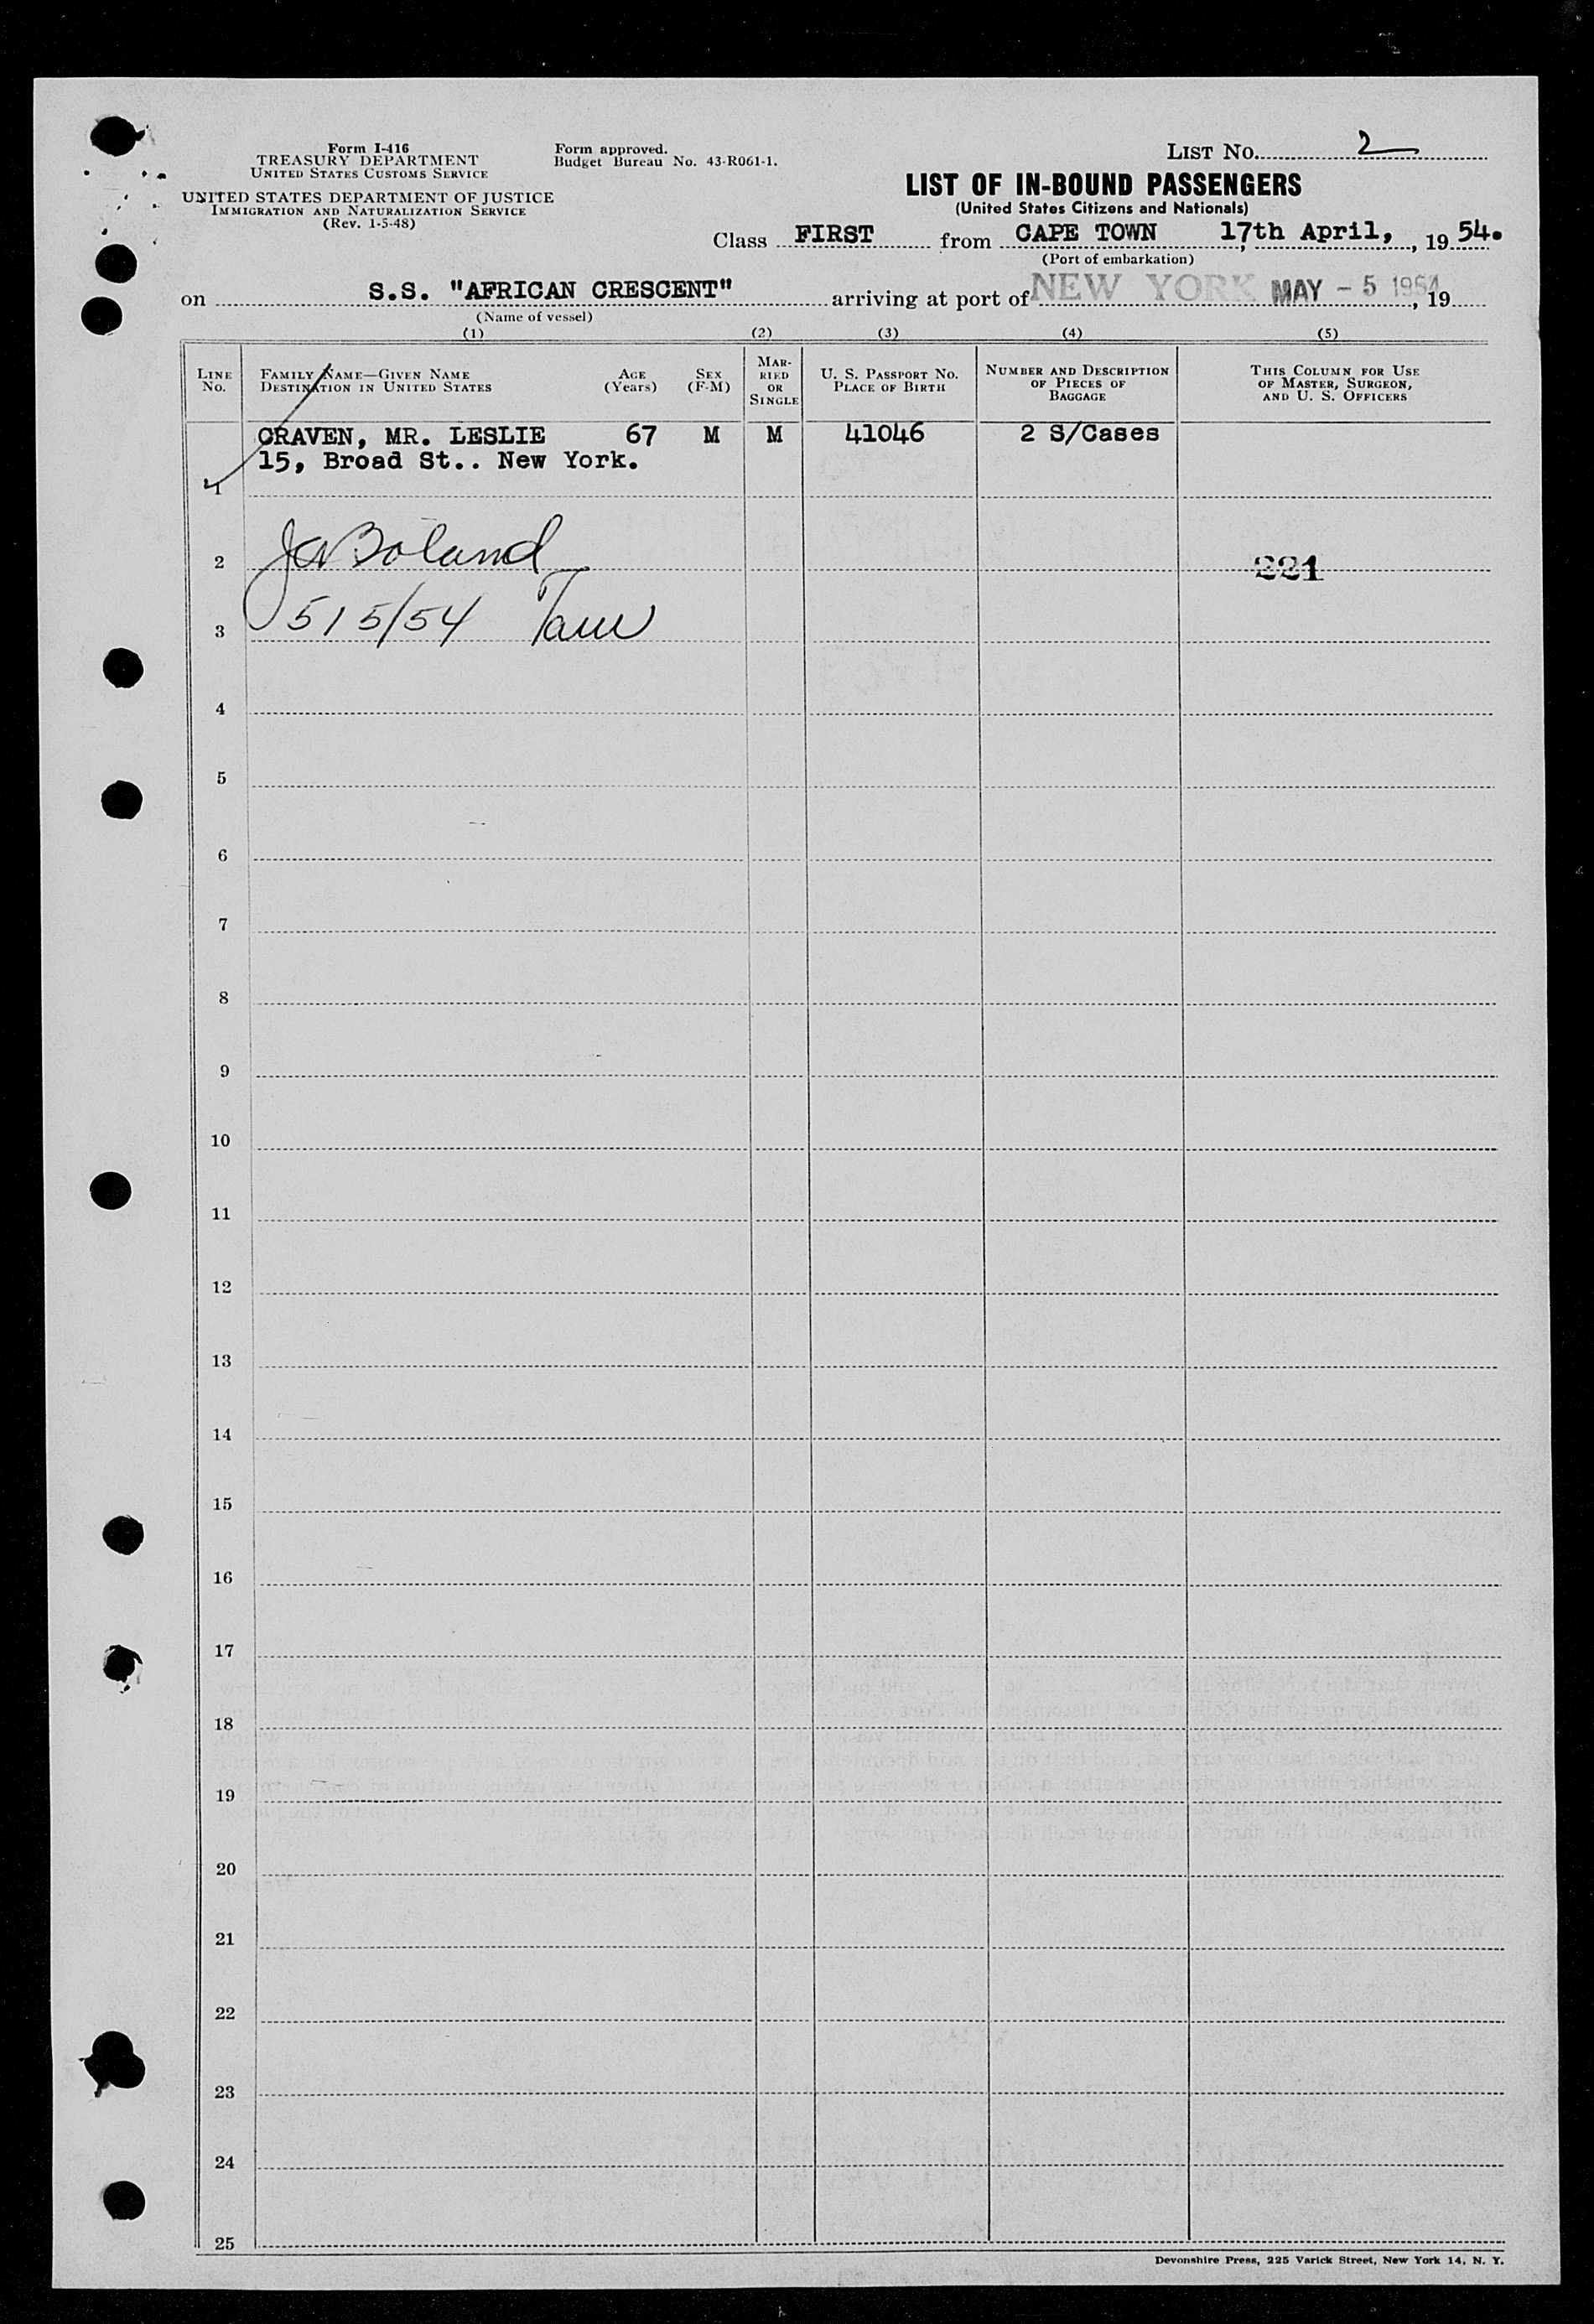 Form I-416
TREASURY DEPARTMENT
UNITED STATES CUSTOMS SERVICE
UNITED STATES DEPARTMENT OF JUSTICE
IMMIGRATION AND NATURALIZATION SERVICE
(Rev. 1-5-48)
Form approved.
Budget Bureau No. 43-R061-1.
LIST NO. 2
LIST OF IN-BOUND PASSENGERS
(United States Citizens and Nationals)
Class FIRST from CAPE TOWN 17th April, , 19 54.
(Port of embarkation)
on S.S. "AFRICAN CRESCENT" arriving at port of NEW YORK MAY - 5 1954, 19
(Name of vessel)
(1) (2) (3) (4) (5)
LINE No.
FAMILY NAME—GIVEN NAME
DESTINATION IN UNITED STATES
AGE (Years)
SEX (F-M)
MARRIED OR SINGLE
U. S. PASSPORT NO.
PLACE OF BIRTH
NUMBER AND DESCRIPTION OF PIECES OF BAGGAGE
THIS COLUMN FOR USE OF MASTER, SURGEON, AND U. S. OFFICERS
CRAVEN, MR. LESLIE 67 M M 41046 2 S/Cases
15, Broad St.. New York.
1
2 Boland 221
3 5/5/54
4
5
6
7
8
9
10
11
12
13
14
15
16
17
18
19
20
21
22
23
24
25
Devonshire Press, 225 Varick Street, New York 14, N. Y.